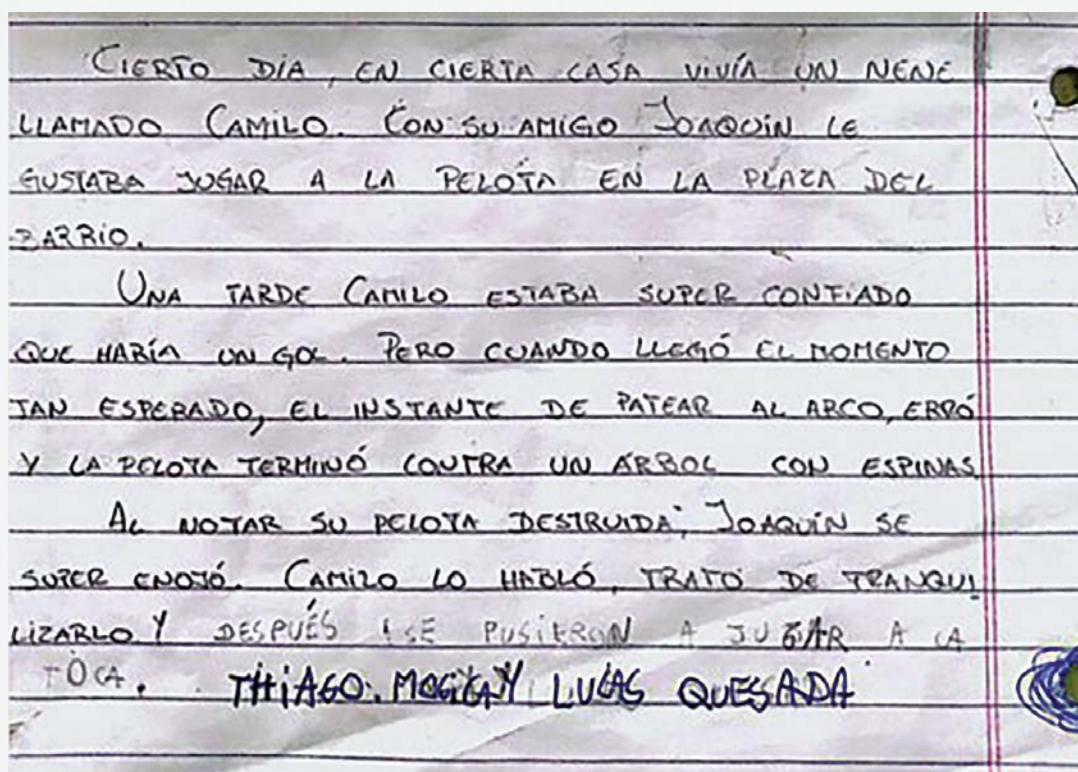 CIERTO DÍA, EN CIERTA CASA VIVÍA UN NENE
LLAMADO CAMILO. CON SU AMIGO JOAQUÍN LE
GUSTABA JUGAR A LA PELOTA EN LA PLAZA DEL
BARRIO.
UNA TARDE CAMILO ESTABA SUPER CONFIADO
QUE HARÍA UN GOL. PERO CUANDO LLEGÓ EL MOMENTO
TAN ESPERADO, EL INSTANTE DE PATEAR AL ARCO, ERRÓ
Y LA PELOTA TERMINÓ CONTRA UN ÁRBOL CON ESPINAS
AL NOTAR SU PELOTA DESTRUIDA, JOAQUÍN SE
SUPER ENOJÓ. CAMILO LO HABLÓ, TRATÓ DE TRANQUI
LIZARLO Y DESPUÉS SE PUSIERON A JUGAR A LA
THIAGO. Y LUCAS QUESADA